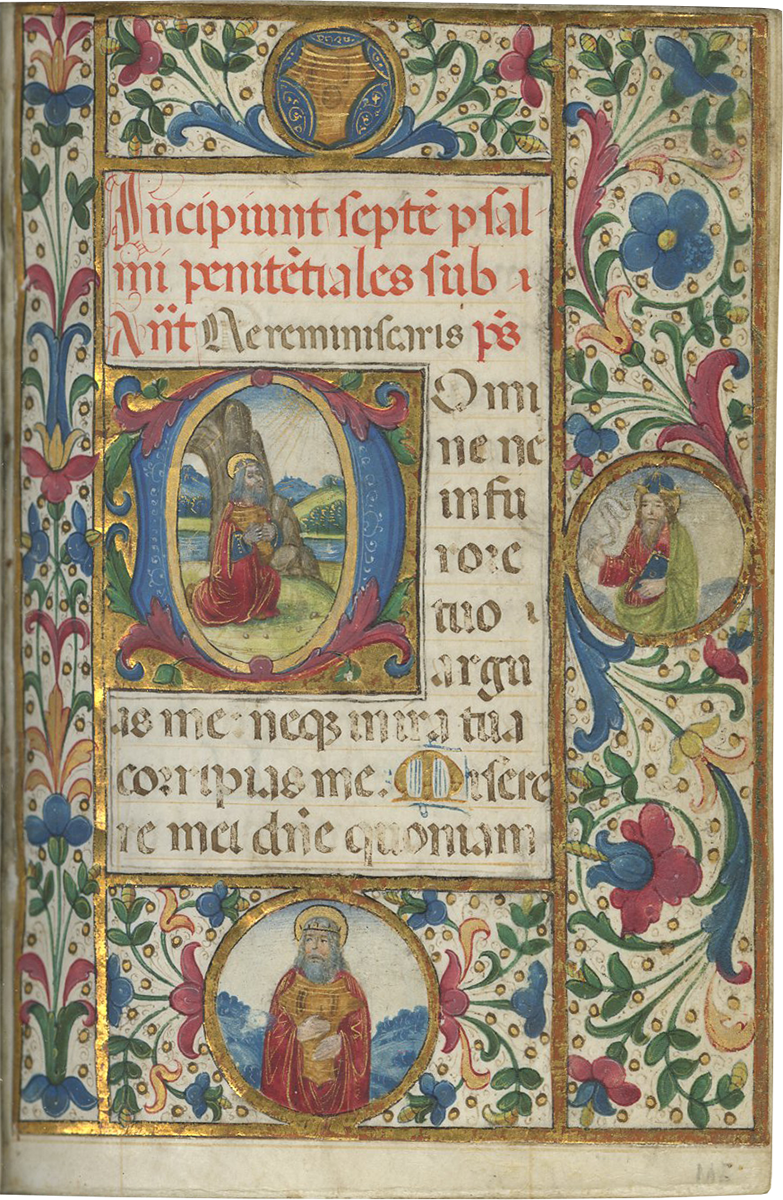 Incipiunt septē psal-
mi penitētiales sub a
Añt Ne reminiscaris ps
Domi
ne ne
in fu
rore
tuo
argu
as me: neqz in ira tua
corripias me: Misere
re mei dñe quoniam